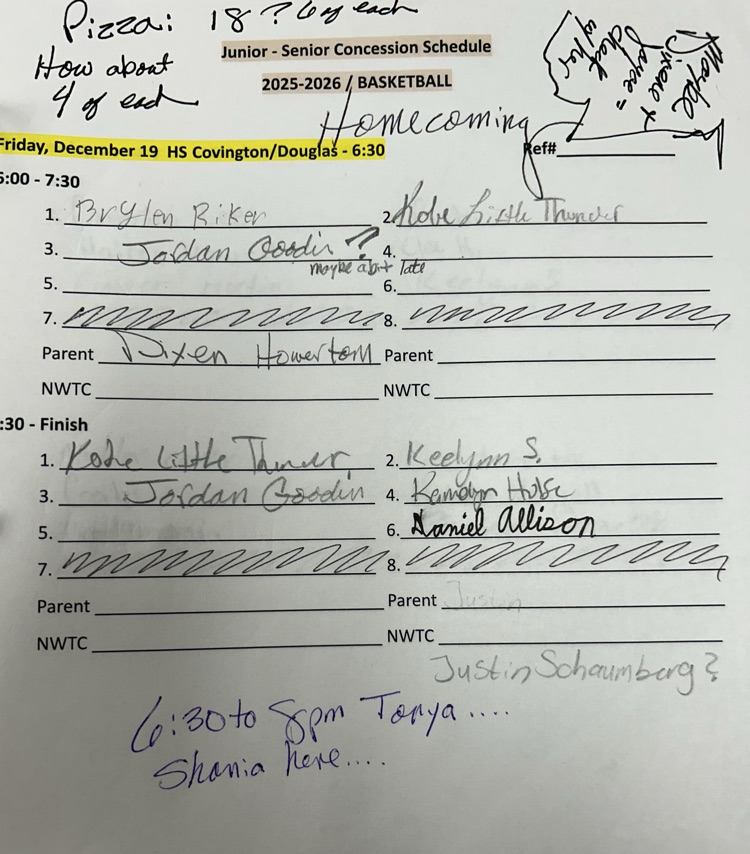 Pizza: 18 ? 6 of each
How about
4 of each
Junior - Senior Concession Schedule
2025-2026 / BASKETBALL
Homecoming
Maybe
check
w/her
Friday, December 19 HS Covington/Douglas - 6:30
Ref#
:00 - 7:30
1. Brylen Riker 2. Kobe Little Thunder
3. Jordan Goodin ? 4.
maybe a bit late
5. 6.
7. 8.
Parent Dixen Howerton Parent
NWTC NWTC
:30 - Finish
1. Kobe Little Thunder 2. Keelynn S.
3. Jordan Goodin 4.
5. 6. Daniel Allison
7. 8.
Parent Parent Justin
NWTC NWTC
Justin Schaumberg?
6:30 to 8pm Tonya ....
Shania here....